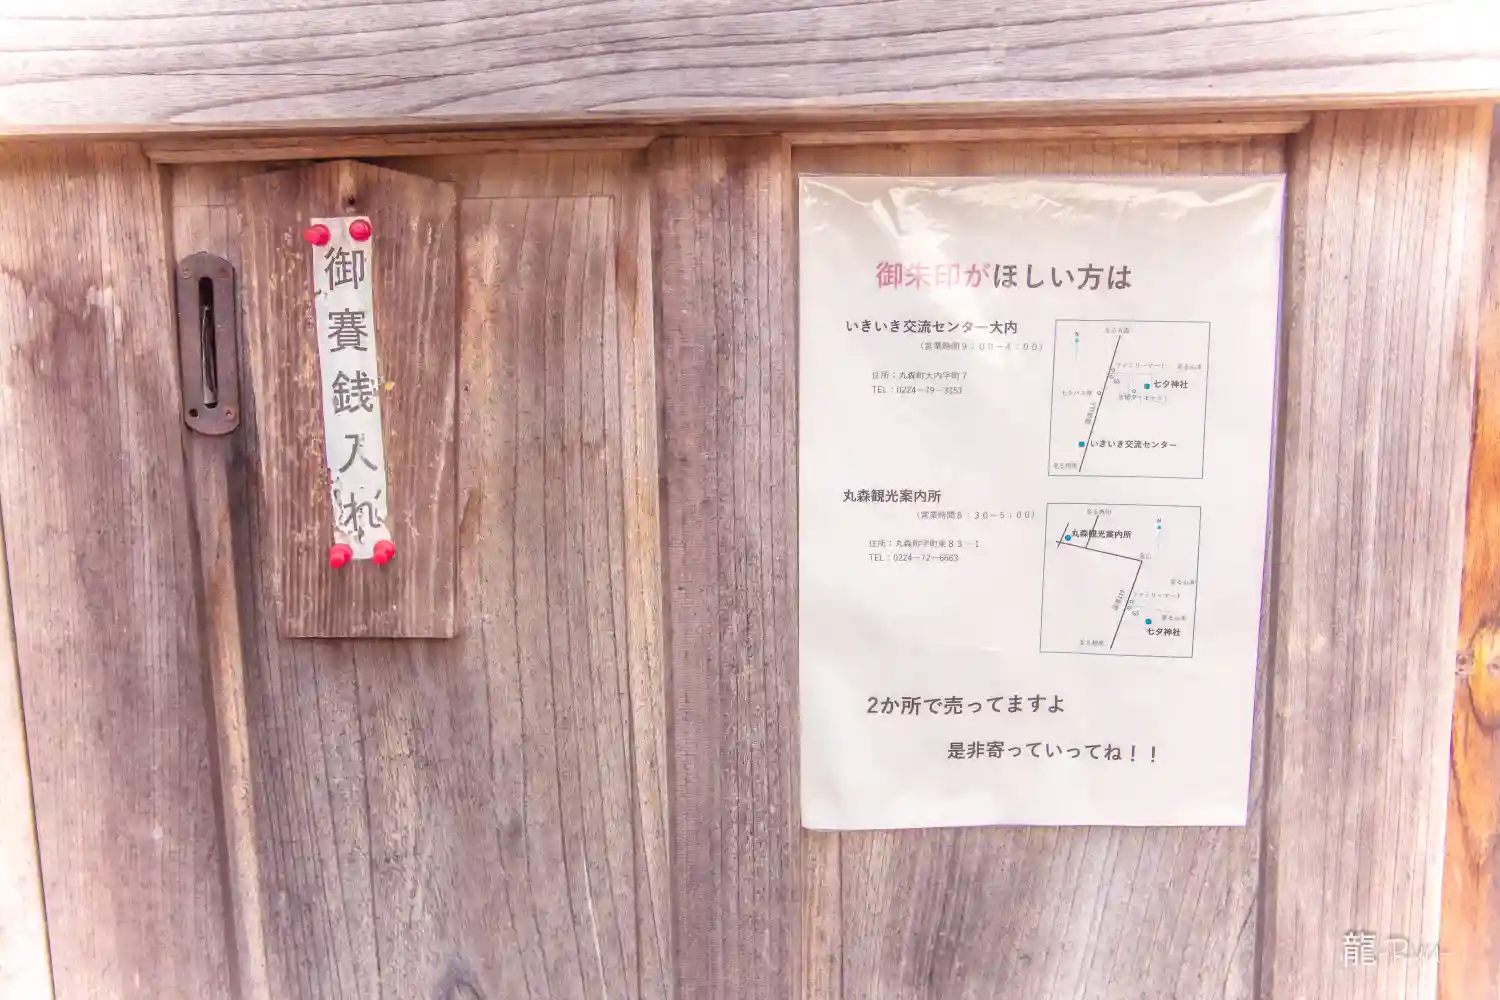 御賽銭入れ
御朱印がほしい方は
いきいき交流センター大内
(営業時間9:00-4:00)
住所:丸森町大内字町7
TEL:0224-79-3151
至る丸森
N
ファミリーマート
至る山本
GS
七夕神社
七夕バス停
いきいき交流センター
至る相馬
丸森観光案内所
(営業時間8:30-5:00)
住所:丸森町字町東83-1
TEL:0224-72-6663
N
丸森観光案内所
至る山本
ファミリーマート
GS
至る山本
七夕神社
至る相馬
2か所で売ってますよ
是非寄っていってね!!
龍-Ryu-